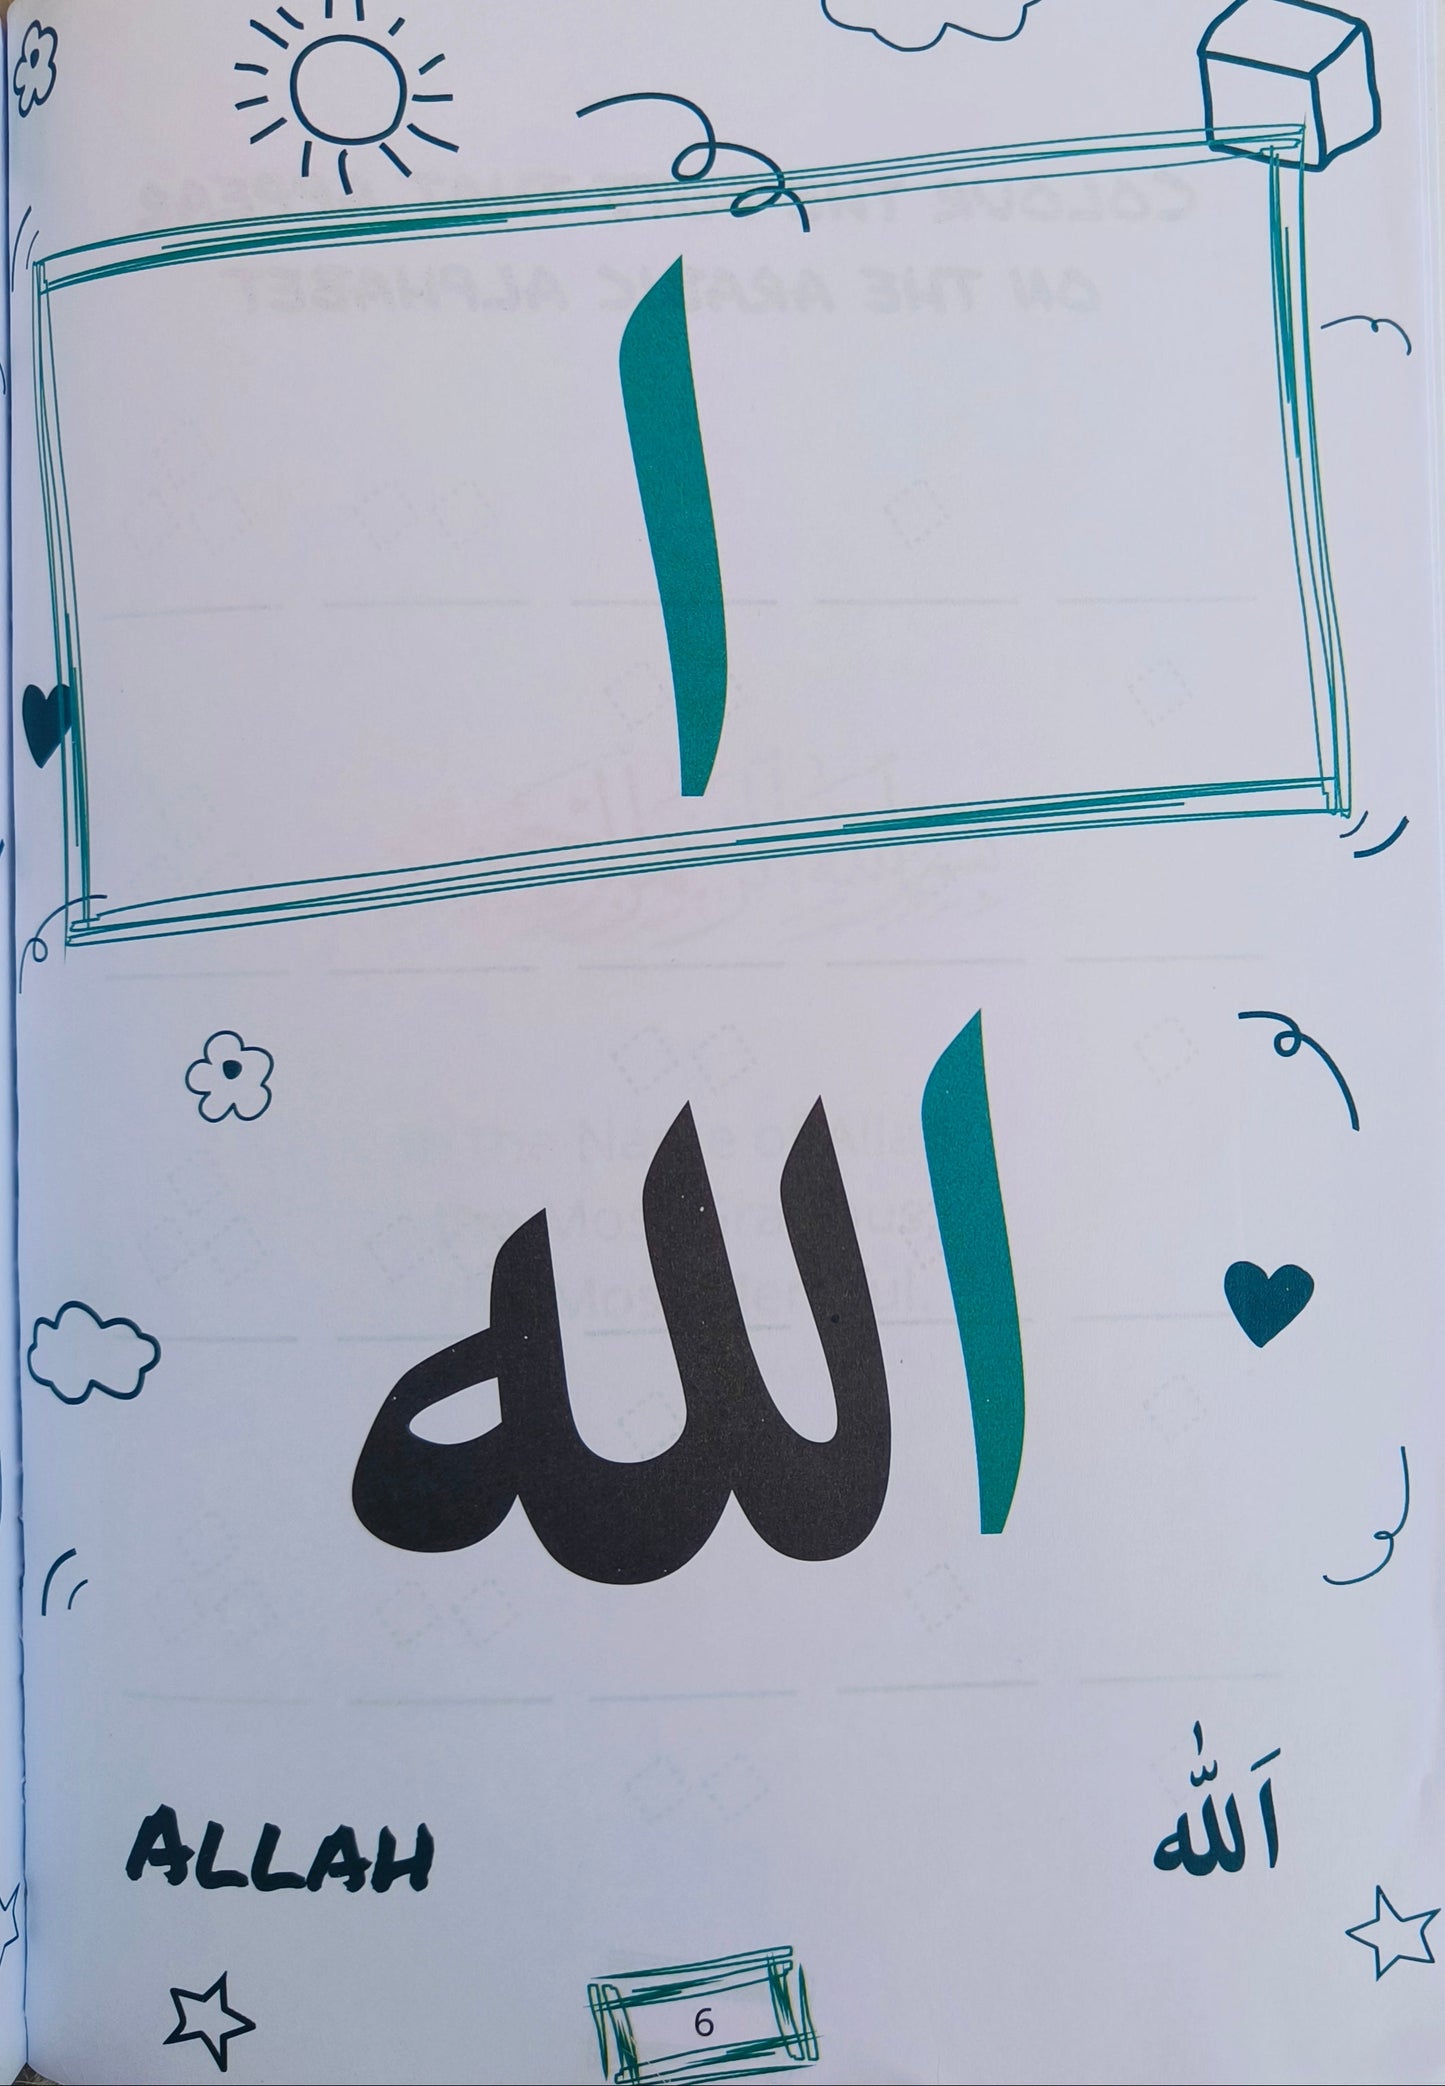 ا
الله
ALLAH اَللّٰه
6